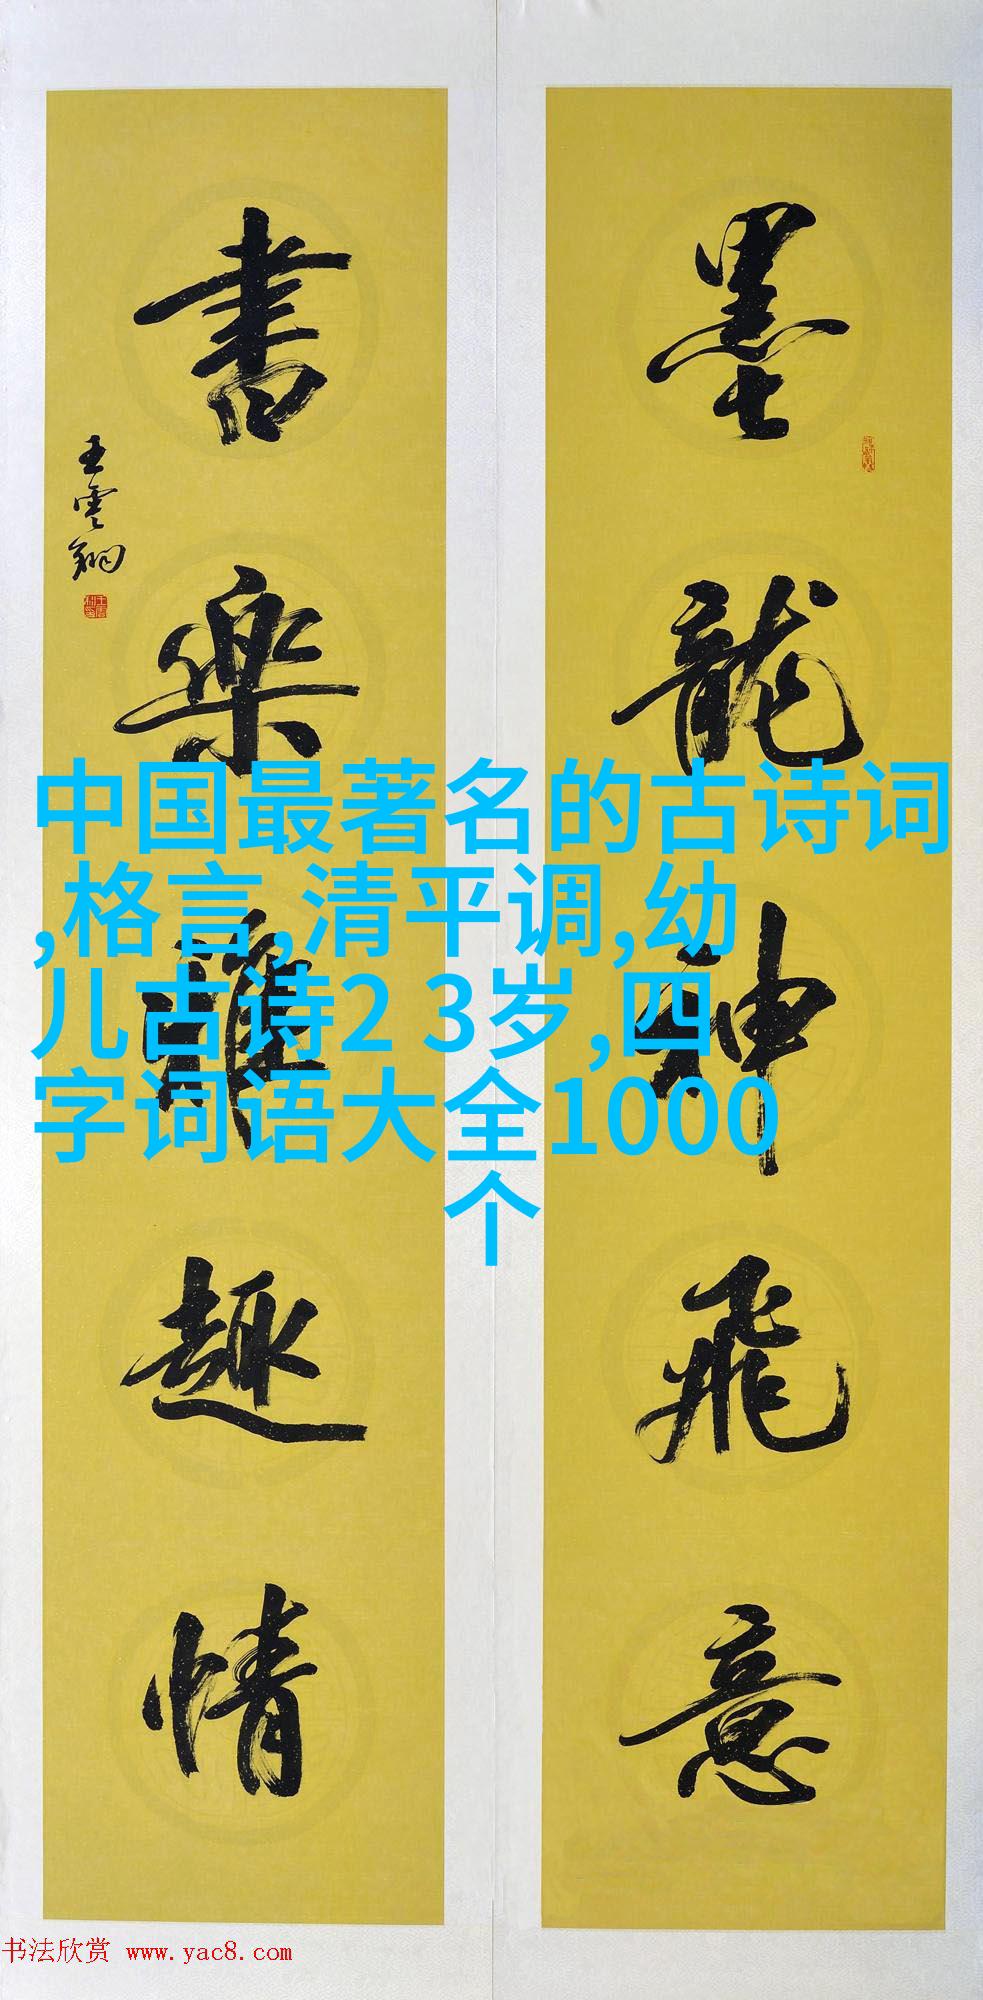 墨龍神飛意
書樂雅趣情
王雲翔
中国最著名的古诗词
,格言,清平调,幼
儿古诗2 3岁,四
字词语大全1000
个
书法欣赏 www.yac8.com